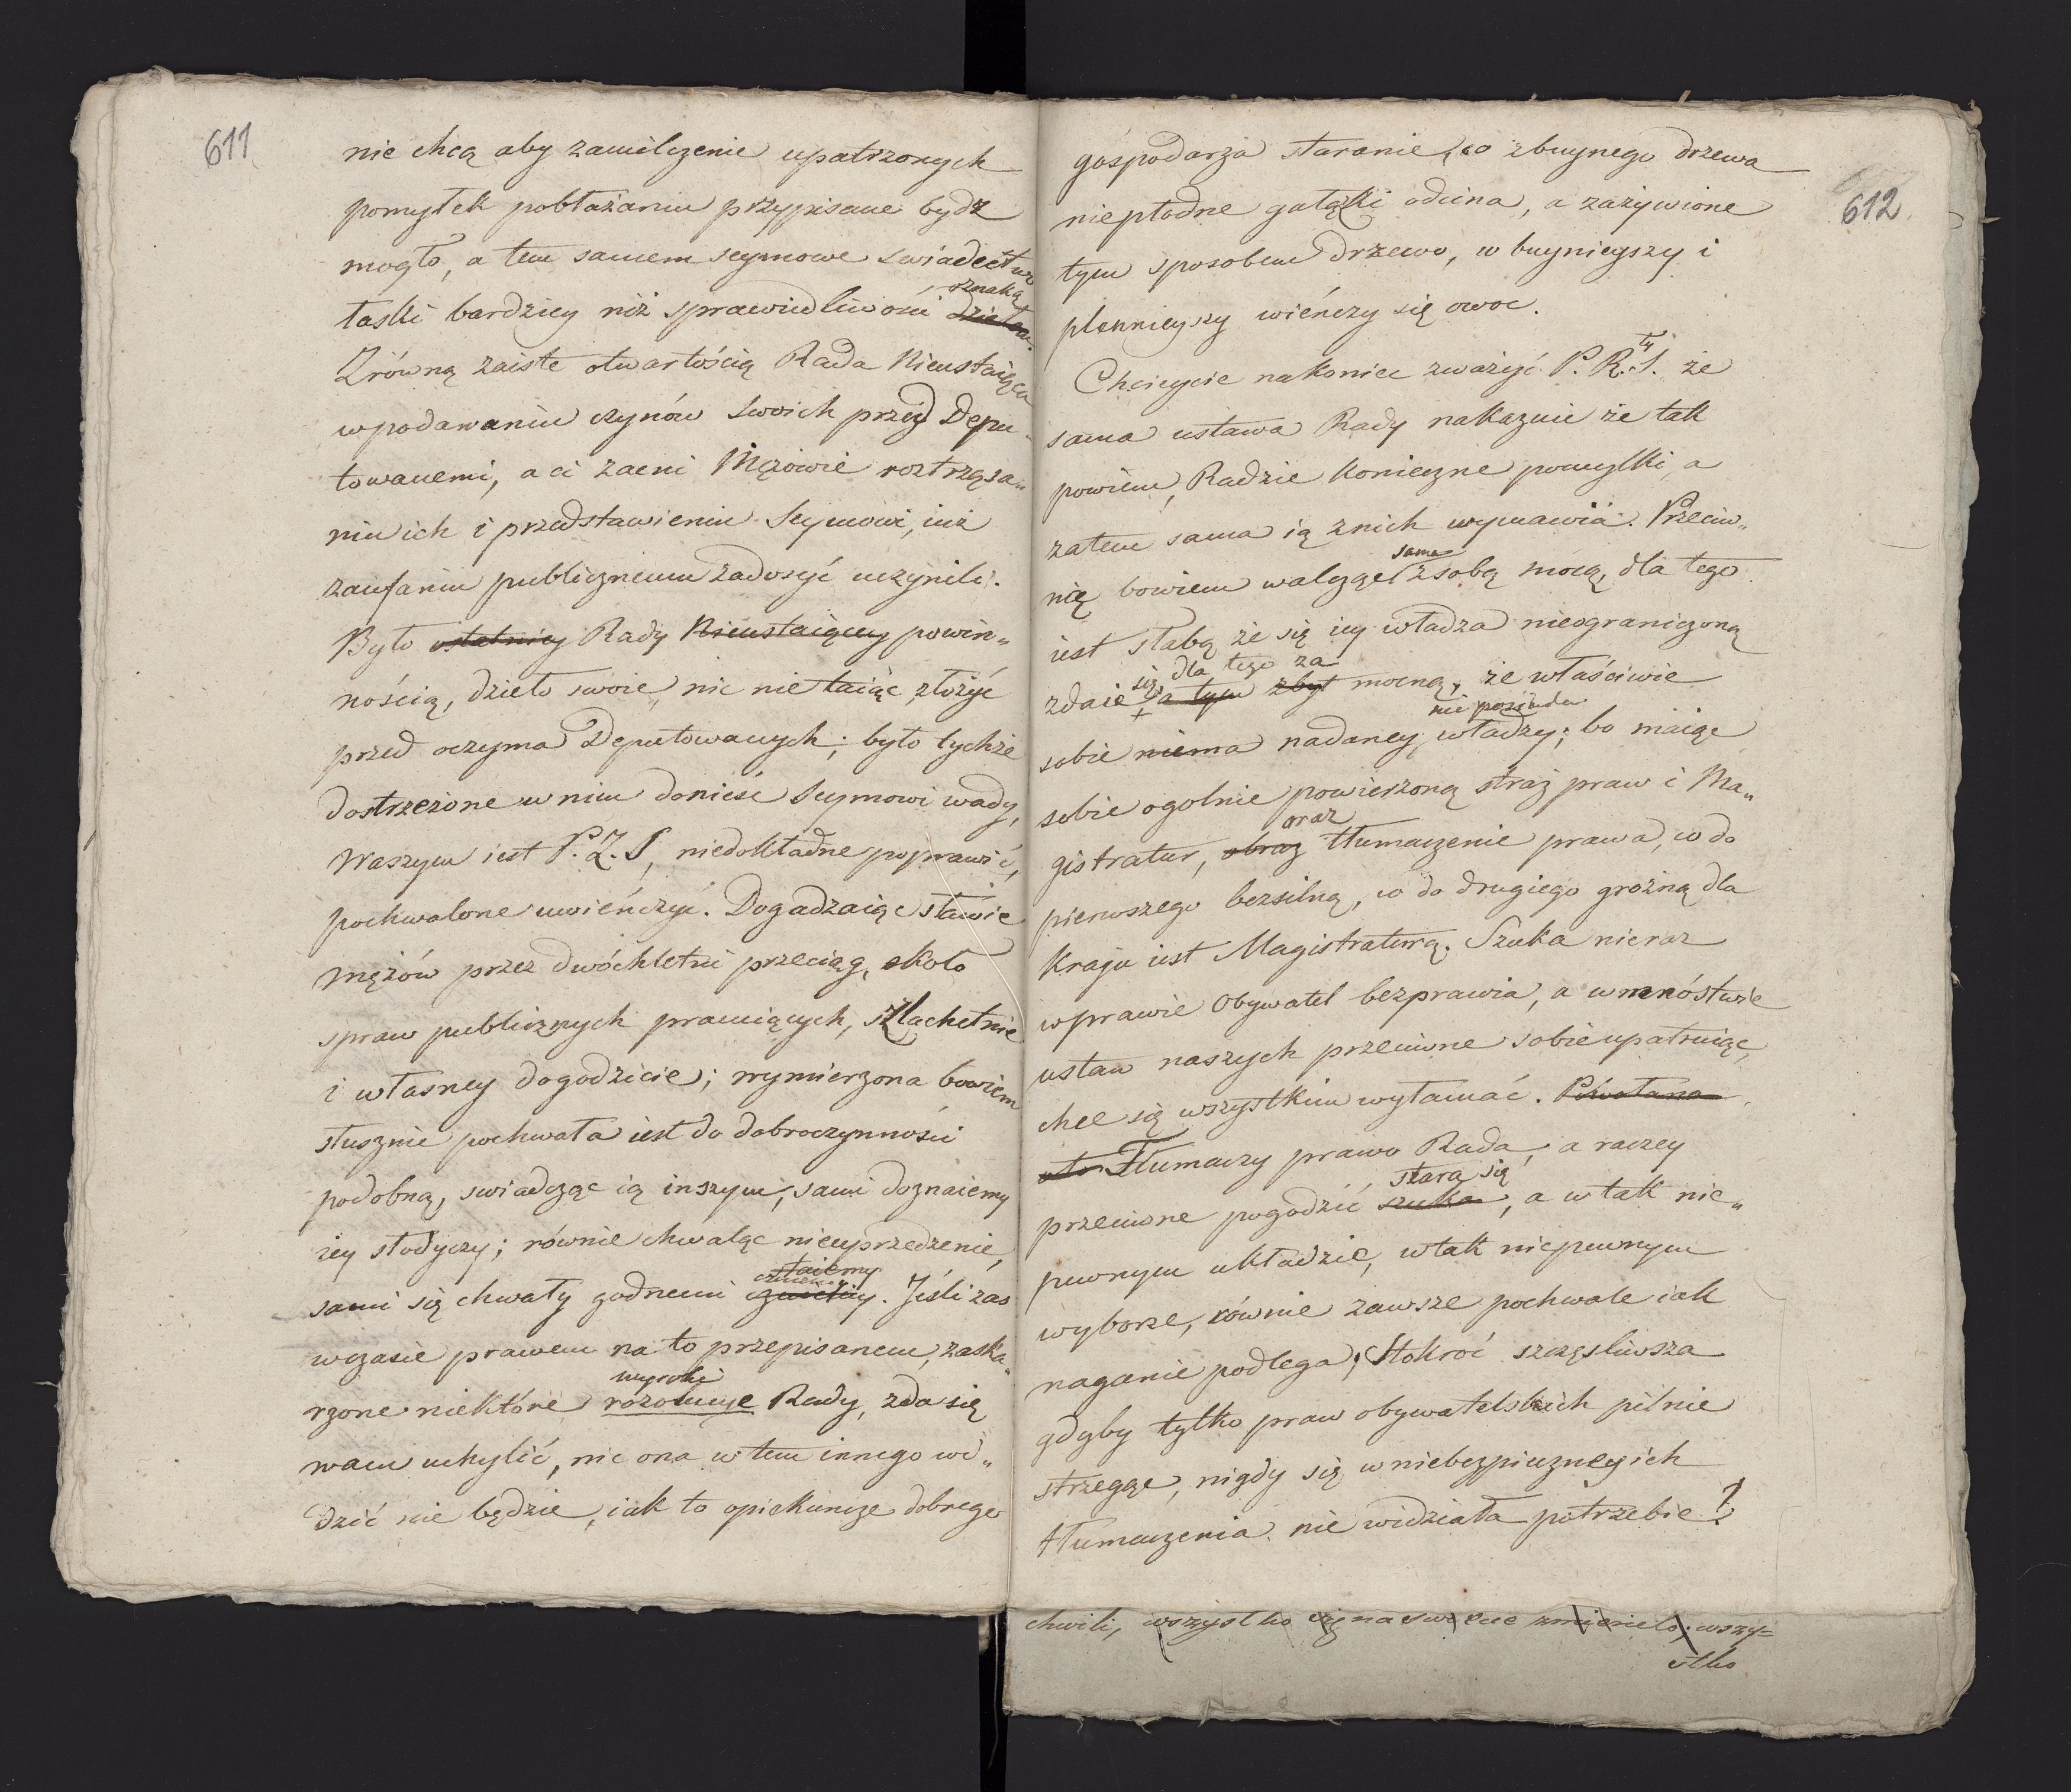 611
nie chcą aby zamilczenie upatrzonych
pomyłek pobłażaniu przypisane bydz
mogło, a tem samem seymowe swiadectwo
oznaką
łaski bardziey niż sprawiedliwości dziełem.
Zrówną zaiste otwartością Rada Nieustaiąca
wpodawaniu czynów swoich przed Depu„
towanemi, a ci zacni Mężowie roztrząsa„
niu ich i przedstawieniu Seymowi, iuż
zaufaniu publicznemu zadosyć uczynili.
Było ostatniey Rady Nieustaiącey powin„
nością, dzieło swoie, nic nie taiąc złożyć
przed oczyma Deputowanych; było tychże
dostrzeżone w nim donieść Seymowi wady,
Waszym iest P. Z. S, niedokładne poprawić,
pochwalone uwieńczyć. Dogadzaiąc sławie
mężów przez dwóchletni przeciąg, około
spraw publicznych pracuiących, szlachetnie
i własney dogodzicie; wymierzona bowiem
słusznie pochwała iest do dobroczynności
podobną, swiadcząc ią inszym, sami doznaiemy
iey słodyczy; równie chwaląc nieuprzedzenie,
staiemy
sami się chwały godnemi. Jeśli zas
wczasie prawem na to przepisanem, zaska„
wyroki
rzone niektóre rozolucye Rady, zda się
wam uchylić, nic ona w tem innego wi„
dzić nie będzie, iak to opiekuńcze dobrego
612
gospodarza staranie, co zbuynego drzewa
niepłodne gałązki odcina, a zażywione
tym sposobem drzewo, w buynieyszy i
plennieyszy wieńczy się owoc.
Chcieycie nakoniec zważyć P. R. ty S. że
sama ustawa Rady nakazuie że tak
powiem, Radzie konieczne pomyłki, a
zatem sama ią znich wymawia. Przeciw„
sama
nię bowiem walcząc zsobą mocą, dla tego
iest słabą że się iey władza nieograniczoną
się dla tego za
zdaie a tym zbyt mocną, że właściwie
nie posiada
sobie niema nadaney władzy; bo maiąc
sobie ogolnie powierzoną straż praw i Ma„
oraz
gistratur, obraz tłumaczenie prawa, co do
pierwszego bezsilną, co do drugiego groźną dla
Kraju iest Magistraturą. Szuka nieraz
wprawie Obywatel bezprawia, a w mnóstwie
ustaw naszych przeciwne sobie upatruiąc,
chce się wszystkim wyłamać. Powołana
oto Tłumaczy prawo Rada, a raczey
stara się
przeciwne pogodzić szuka, a w tak nie„
pewnym układzie, wtak niepewnym
wyborze, równie zawsze pochwale iak
naganie podlega; Stokroć szczęsliwsza
gdyby tylko praw obywatelskich pilnie
strzegąc, nigdy się w niebezpieczney ich
tłumaczenia nie widziała potrzebie!
chwili, wszystko zmieniło; wszy=
stko